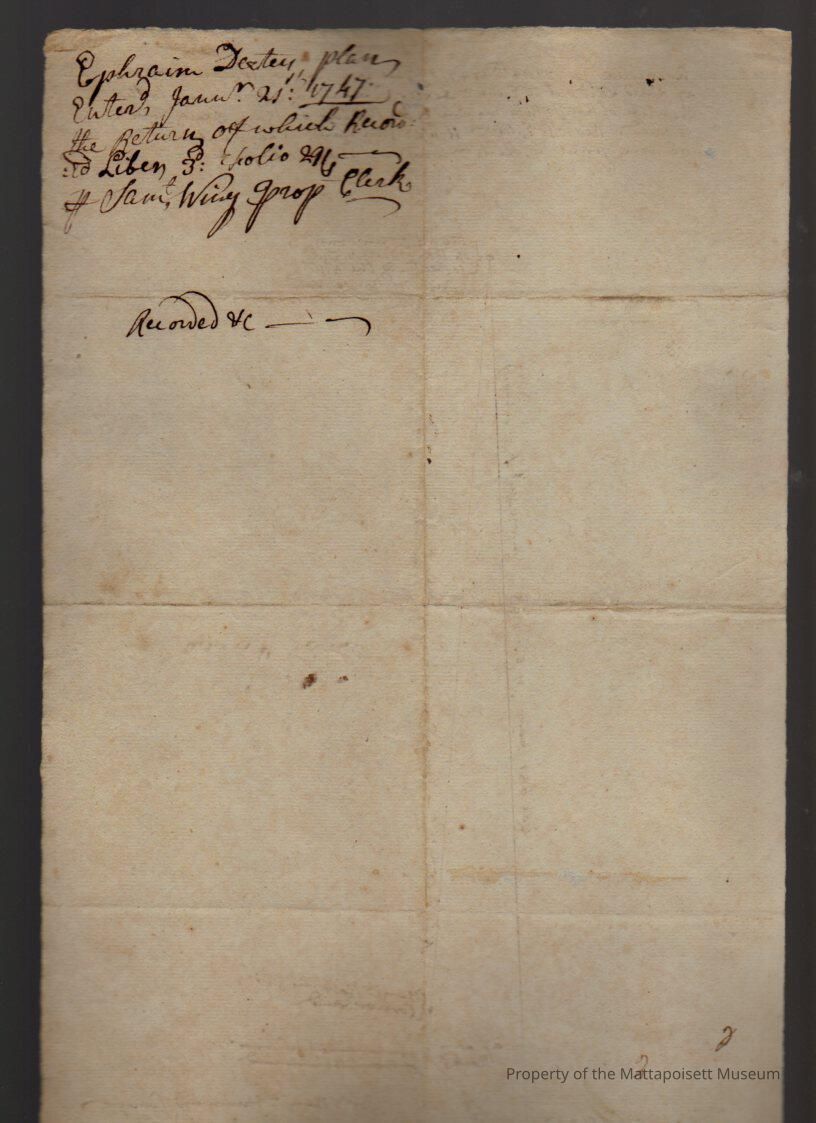 Ephraim Dexters plan
Enterd Janur. 21st: 1747
the Return of which Record
:ed Liber 3d: folio
⅌ Saml. Wing Prop Clerk
Recorded &c
2
Property of the Mattapoisett Museum